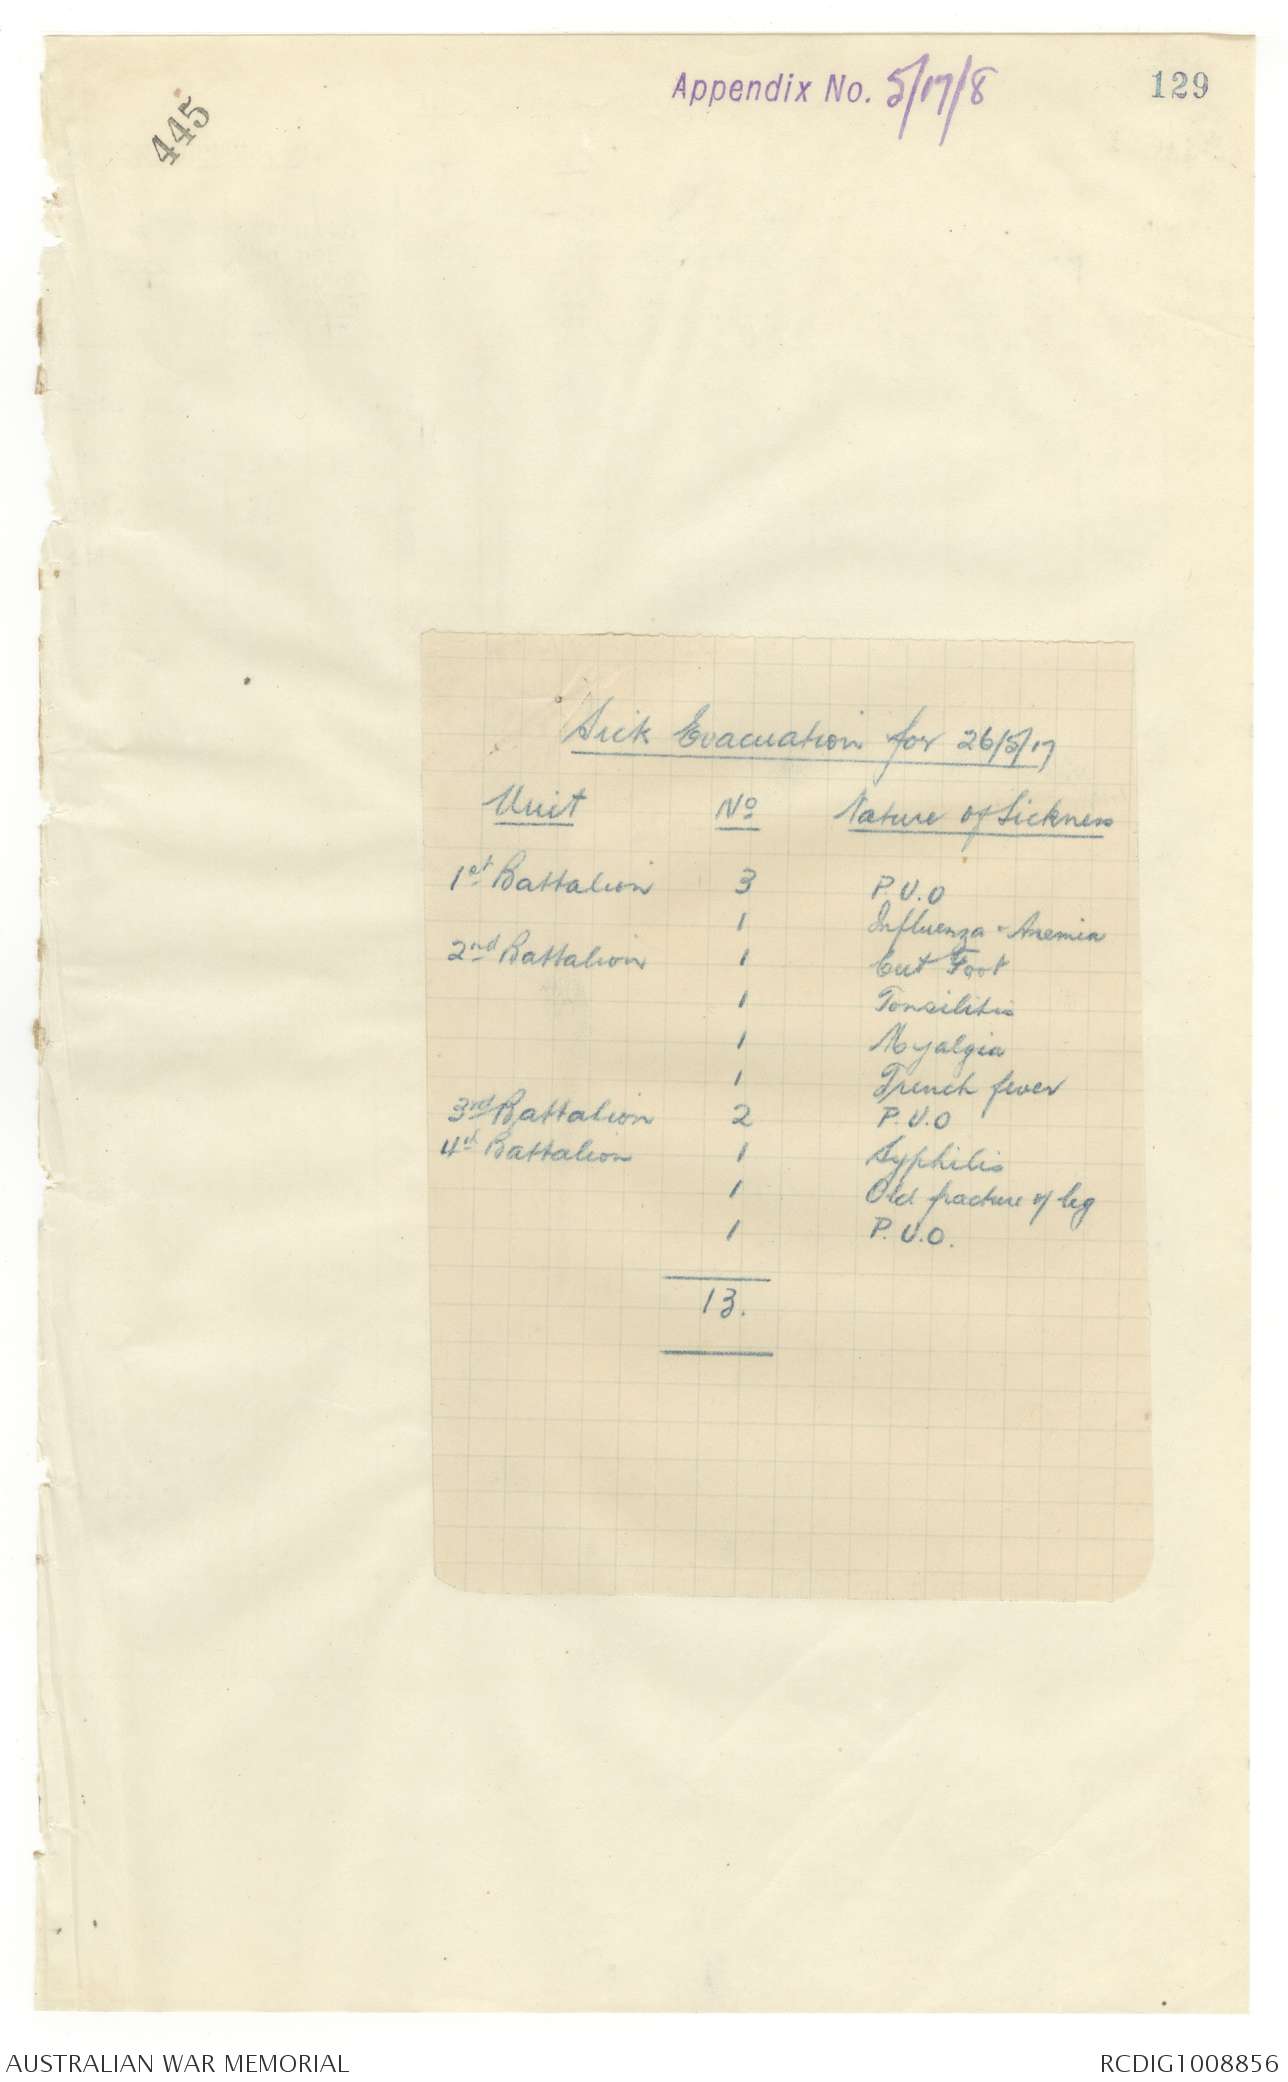 445
Appendix No. 5/17/8
129
Sick Evacuation for 26/5/17
Unit Nº Nature of Sickness
1st Battalion 3 P.U.O
1 Influenza - Anemia
2nd Battalion 1 Cut Foot
1 Tonsilitis
1 Myalgia
1 Trench fever
3rd Battalion 2 P.U.O
4th Battalion 1 Syphilis
1 Old fracture of leg
1 P.U.O.
13.
AUSTRALIAN WAR MEMORIAL
RCDIG1008856